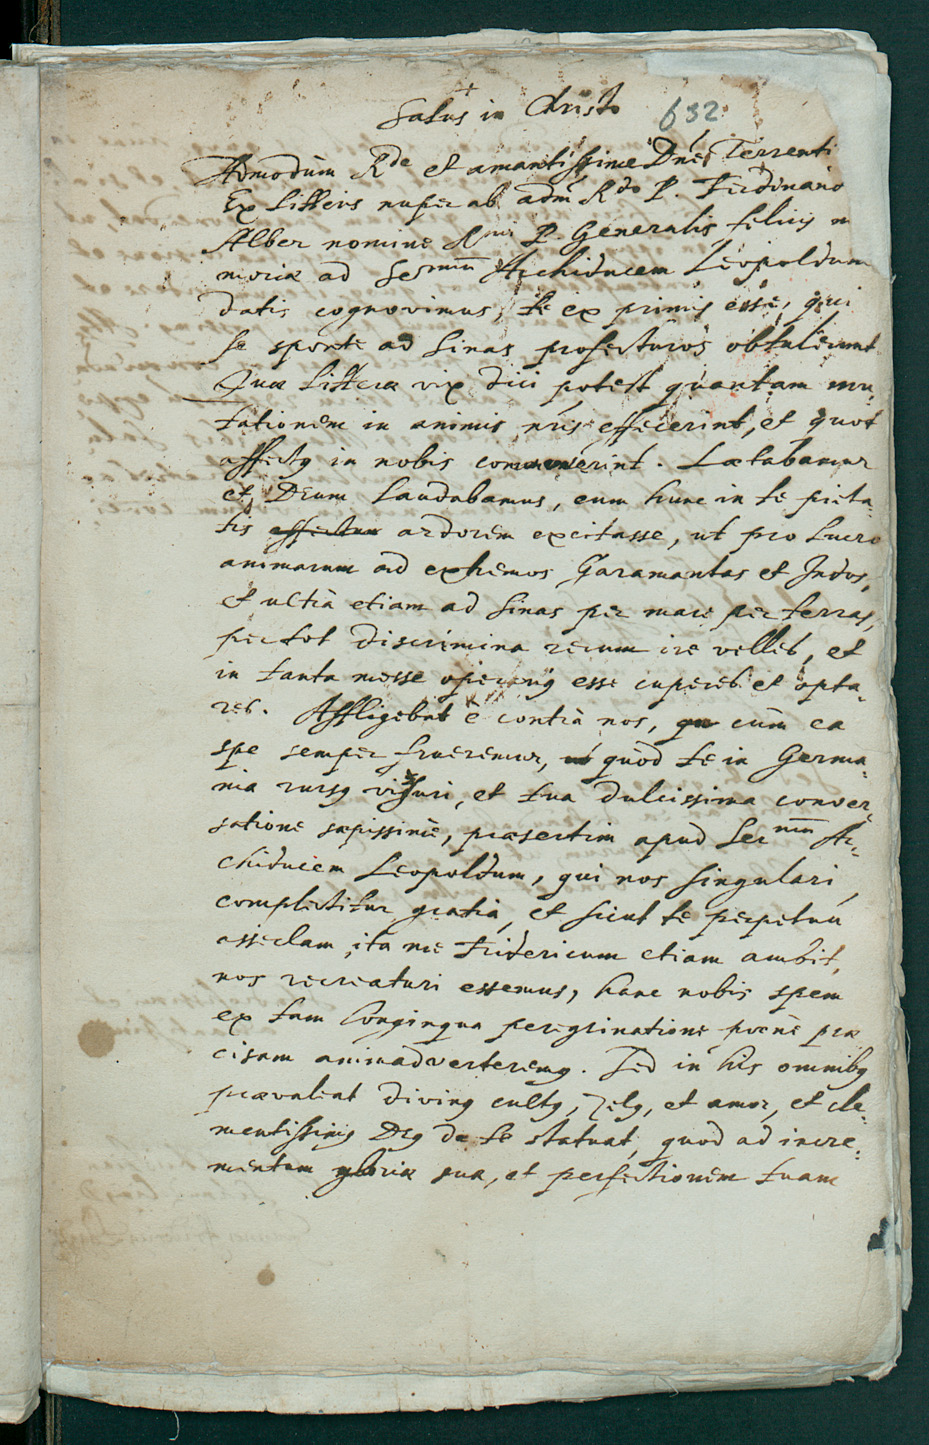 Salus in Christo 632
Admodùm Rde et amantissime Dne Terrenti
Ex litteris nuper ab adm Rdo P. Ferdinand
Alber nomine Rmi P. Generalis felicis m
moriæ ad Sermum Archiducem Leopoldum
datis cognovimus, te ex primis esse, qui
se sponte ad Sinas profecturos obtulerunt
Quæ litteræ vix dici potest quantam mu,
tationem in animis nris effecerint, et quot
affectus in nobis commoverint. Lætabamur
et Deum laudabamus, eum hunc in te pieta,
tis effectum ardorem excitasse, ut pro lucro
animarum ad extremos Garamantas et Indos,
et ultrà etiam ad Sinas per mare per terras,
per tot discrimina rerum ire velles, et
in tanta messe operarius esse cuperes et opta,
res. Affligebat è contrà nos, qu cùm ea
spe semper frueremur, quòd te in Germa,
nia rursus visuri, et tua dulcissima conver,
satione sæpissimè, præsertim apud Sermum Ar,
chiducem Leopoldum, qui nos singulari
complectitur gratiâ, et sicut te perpetuu
asseclam, ita me Fridericum etiam ambit,
nos recreaturi essemus, hanc nobis spem
ex tam longinqua peregrinatione poenè præ
cisam animadverteremus. Sed in his omnibus
prævaleat divinus cultus, zelus, et amor, et cle,
mentissimus Deus de te statuat, quod ad incre,
mentum gloriæ suæ, et perfectionem tuam